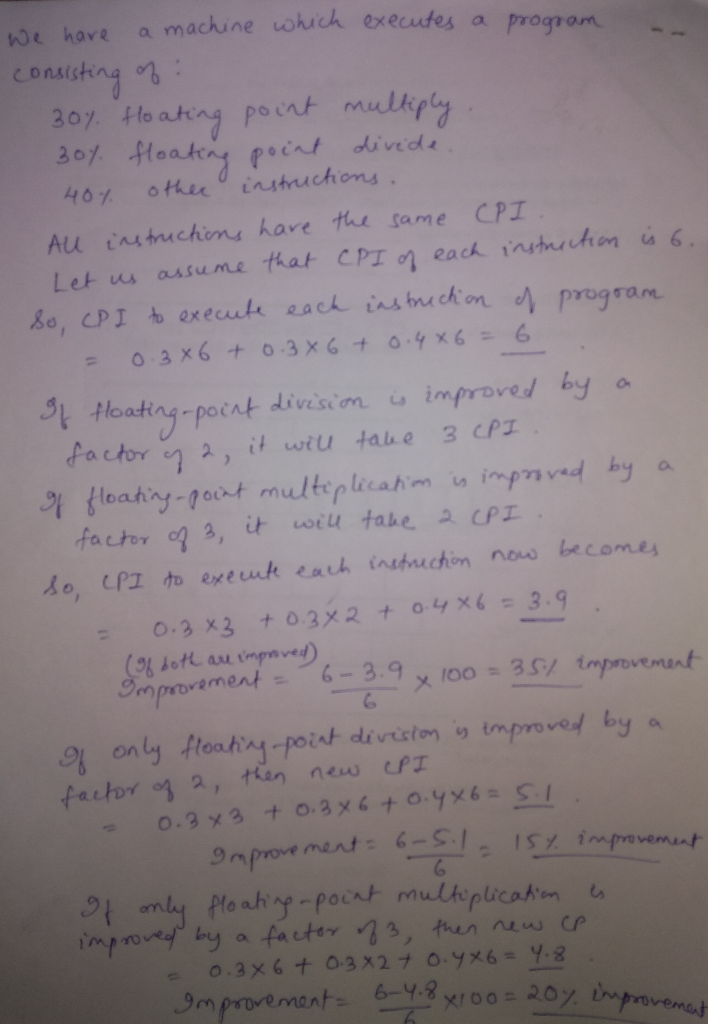 We have a machine which executes a program
consisting of :
30% floating point multiply.
30% floating point divide.
40% other instructions.
All instructions have the same CPI.
Let us assume that CPI of each instruction is 6.
So, CPI to execute each instruction of program
= 0.3 x6 + 0.3 x6 + 0.4 x6 = 6
If floating-point division is improved by a
factor of 2, it will take 3 CPI.
If floating-point multiplication is improved by a
factor of 3, it will take 2 CPI.
So, CPI to execute each instruction now becomes
= 0.3 x3 + 0.3x2 + 0.4 x6 = 3.9.
(If both are improved)
Improvement = 6-3.9/6 x 100 = 35% improvement
If only floating-point division is improved by a
factor of 2, then new CPI
= 0.3 x 3 + 0.3x6 + 0.4x6 = 5.1.
Improvement = 6-5.1/6 = 15% improvement
If only floating-point multiplication is
improved by a factor of 3, then new CP
= 0.3x6 + 0.3x2 + 0.4x6 = 4.8.
Improvement = 6-4.8/6 x100 = 20% improvement